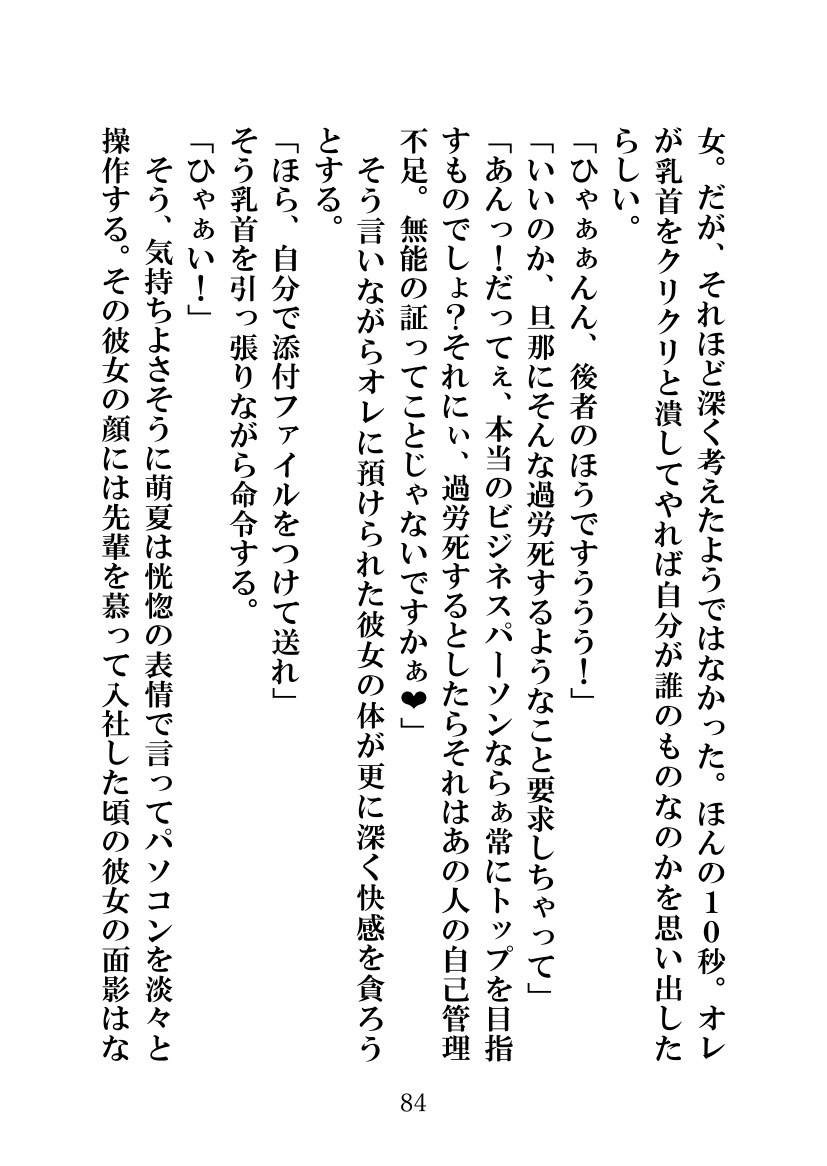 女。だが、それほど深く考えたようではなかった。ほんの10秒。オレ
が乳首をクリクリと潰してやれば自分が誰のものなのかを思い出した
らしい。
「ひゃぁぁんん、後者のほうですううう！」
「いいのか、旦那にそんな過労死するようなこと要求しちゃって」
「あんっ！だってぇ、本当のビジネスパーソンならぁ常にトップを目指
すものでしょ？それにぃ、過労死するとしたらそれはあの人の自己管理
不足。無能の証ってことじゃないですかぁ❤」
　そう言いながらオレに預けられた彼女の体が更に深く快感を貪ろう
とする。
「ほら、自分で添付ファイルをつけて送れ」
そう乳首を引っ張りながら命令する。
「ひゃぁい！」
　そう、気持ちよさそうに萌夏は恍惚の表情で言ってパソコンを淡々と
操作する。その彼女の顔には先輩を慕って入社した頃の彼女の面影はな
84